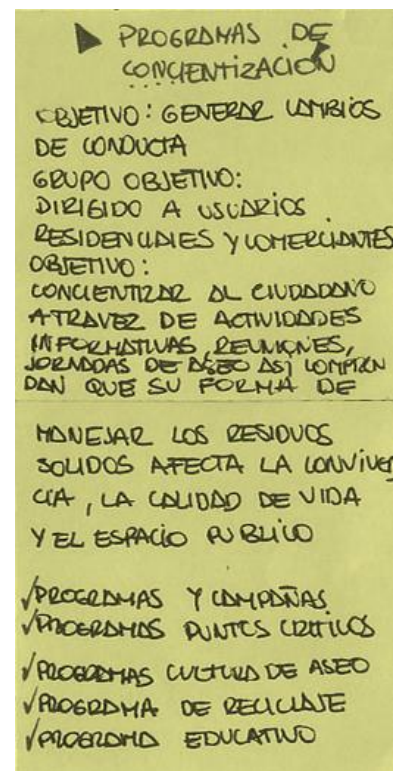 PROGRAMAS DE
CONCIENTIZACIÓN
OBJETIVO: GENERAR CAMBIOS
DE CONDUCTA
GRUPO OBJETIVO:
DIRIGIDO A USUARIOS
RESIDENCIALES Y COMERCIANTES
OBJETIVO:
CONCIENTIZAR AL CIUDADANO
ATRAVEZ DE ACTIVIDADES
INFORMATIVAS, REUNIONES,
JORNADAS DE ASEO ASI COMPREN
DAN QUE SU FORMA DE
MANEJAR LOS RESIDUOS
SOLIDOS AFECTA LA CONVIVEN
CIA, LA CALIDAD DE VIDA
Y EL ESPACIO PUBLICO
✓PROGRAMAS Y CAMPAÑAS
✓PROGRAMAS PUNTOS CRITICOS
✓PROGRAMAS CULTURA DE ASEO
✓PROGRAMA DE RECICLAJE
✓PROGRAMA EDUCATIVO